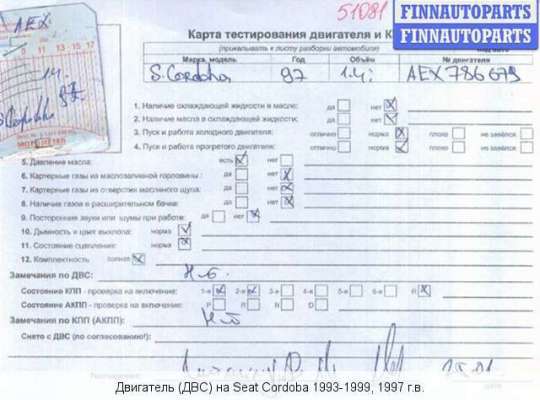 51081
FINNAUTOPARTS
FINNAUTOPARTS
AEX
Карта тестирования двигателя и К
(прикалывать к листу разборки автомобиля)
Марка, модель Год Объём № двигателя
S. Cordoba 97 1.4i AEX 786679
1. Наличие охлаждающей жидкости в масле: да нет
2. Наличие масла в охлаждающей жидкости: да нет
3. Пуск и работа холодного двигателя: отлично норма плохо не завёлся
4. Пуск и работа прогретого двигателя: отлично норма плохо не завёлся
5. Давление масла: есть нет
6. Картерные газы из маслозаливной горловины: да нет
7. Картерные газы из отверстия масляного щупа: да нет
8. Наличие газов в расширительном бачке: да нет
9. Посторонние звуки или шумы при работе: да нет
10. Дымность и цвет выхлопа: норма
11. Состояние сцепления: норма
12. Комплектность полная
Замечания по ДВС: н.б.
Состояние КПП - проверка на включение: 1-я 2-я 3-я 4-я 5-я 6-я R
Состояние АКПП - проверка на включение: P R N D
Замечания по КПП (АКПП): н.б
Снето с ДВС (по согласованию!):
Двигатель (ДВС) на Seat Cordoba 1993-1999, 1997 г.в.